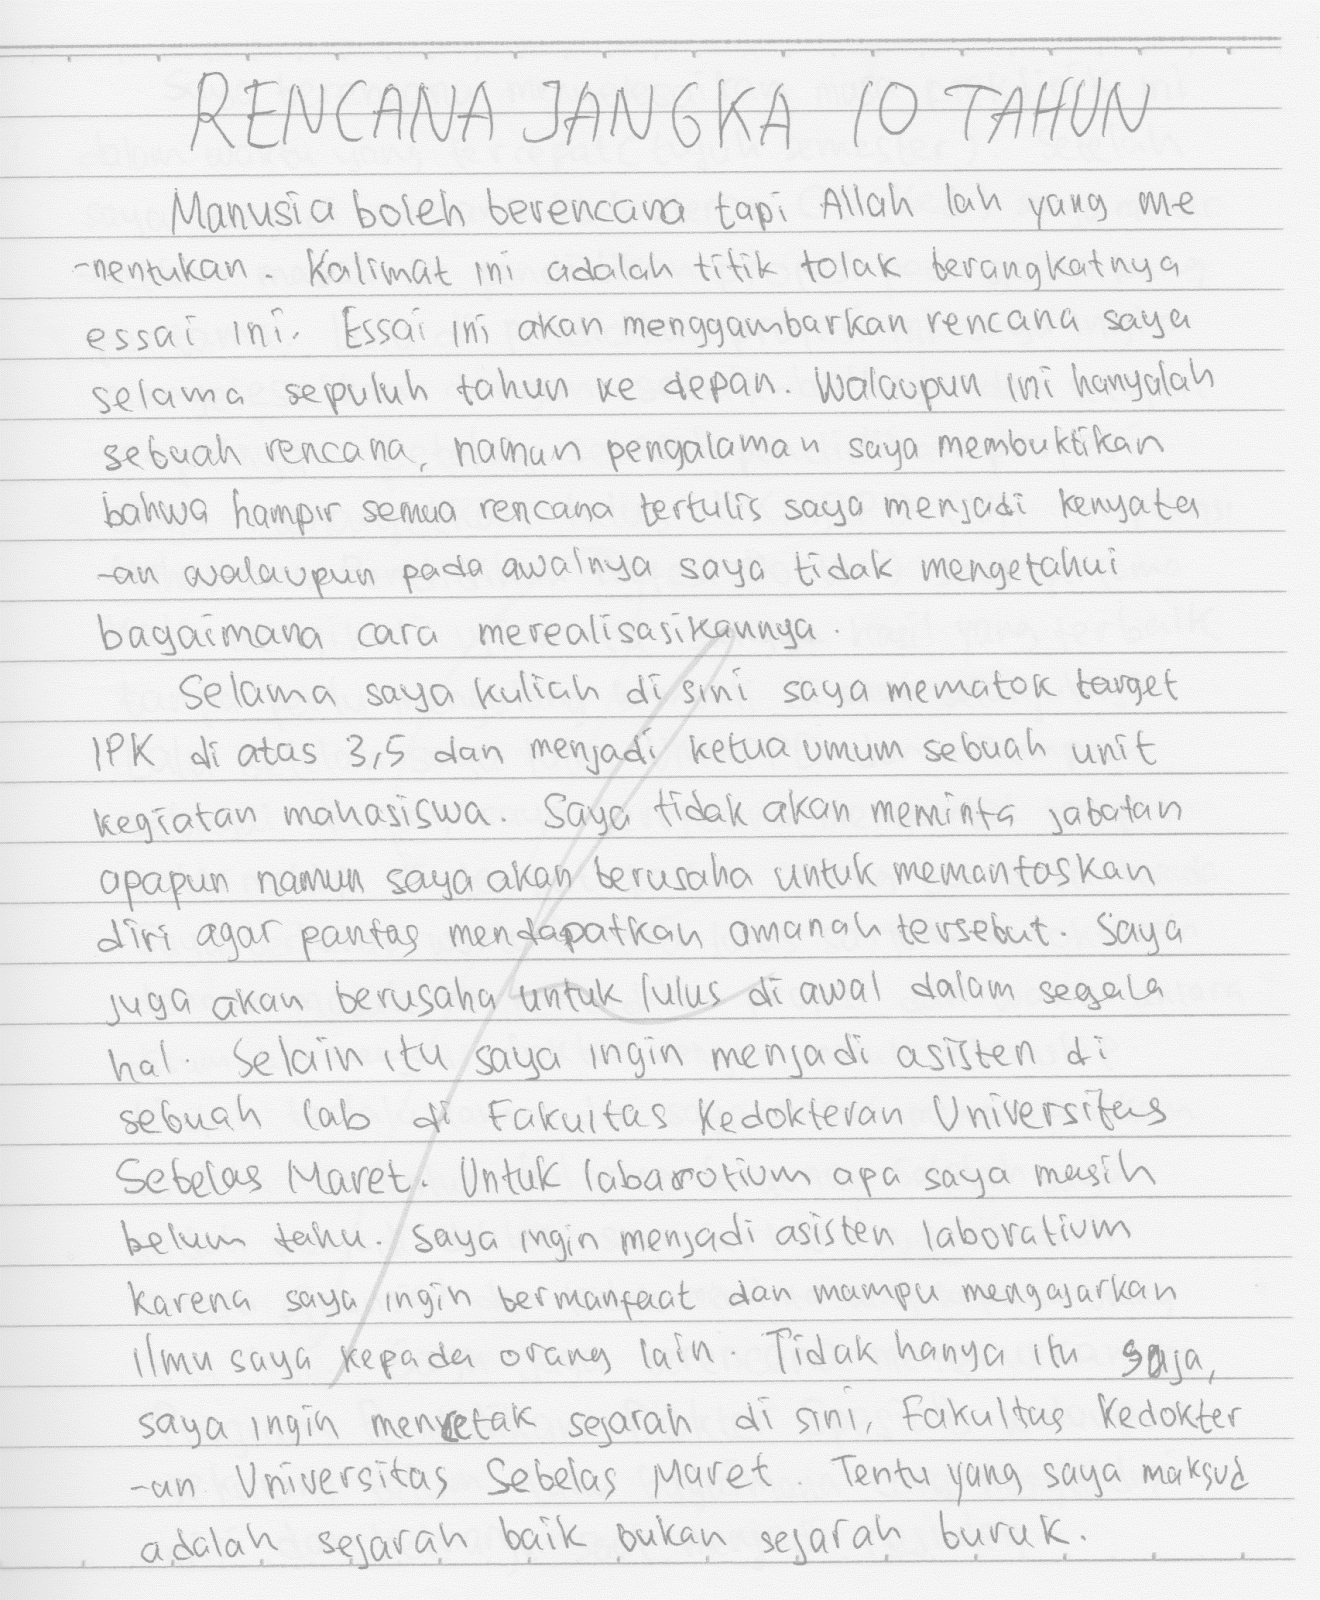 RENCANA JANGKA 10 TAHUN
Manusia boleh berencana tapi Allah lah yang me
-nentukan. Kalimat ini adalah titik tolak berangkatnya
essai ini. Essai ini akan menggambarkan rencana saya
selama sepuluh tahun ke depan. Walaupun ini hanyalah
sebuah rencana, namun pengalaman saya membuktikan
bahwa hampir semua rencana tertulis saya menjadi kenyata
-an walaupun pada awalnya saya tidak mengetahui
bagaimana cara merealisasikannya.
Selama saya kuliah di sini saya mematok target
IPK di atas 3,5 dan menjadi ketua umum sebuah unit
kegiatan mahasiswa. Saya tidak akan meminta jabatan
apapun namun saya akan berusaha untuk memantaskan
diri agar pantas mendapatkan amanah tersebut. Saya
juga akan berusaha untuk lulus di awal dalam segala
hal. Selain itu saya ingin menjadi asisten di
sebuah lab di Fakultas Kedokteran Universitas
Sebelas Maret. Untuk labarotium apa saya masih
belum tahu. Saya ingin menjadi asisten laboratium
karena saya ingin bermanfaat dan mampu mengajarkan
ilmu saya kepada orang lain. Tidak hanya itu saja,
saya ingin mencetak sejarah di sini, Fakultas Kedokter
-an Universitas Sebelas Maret. Tentu yang saya maksud
adalah sejarah baik bukan sejarah buruk.